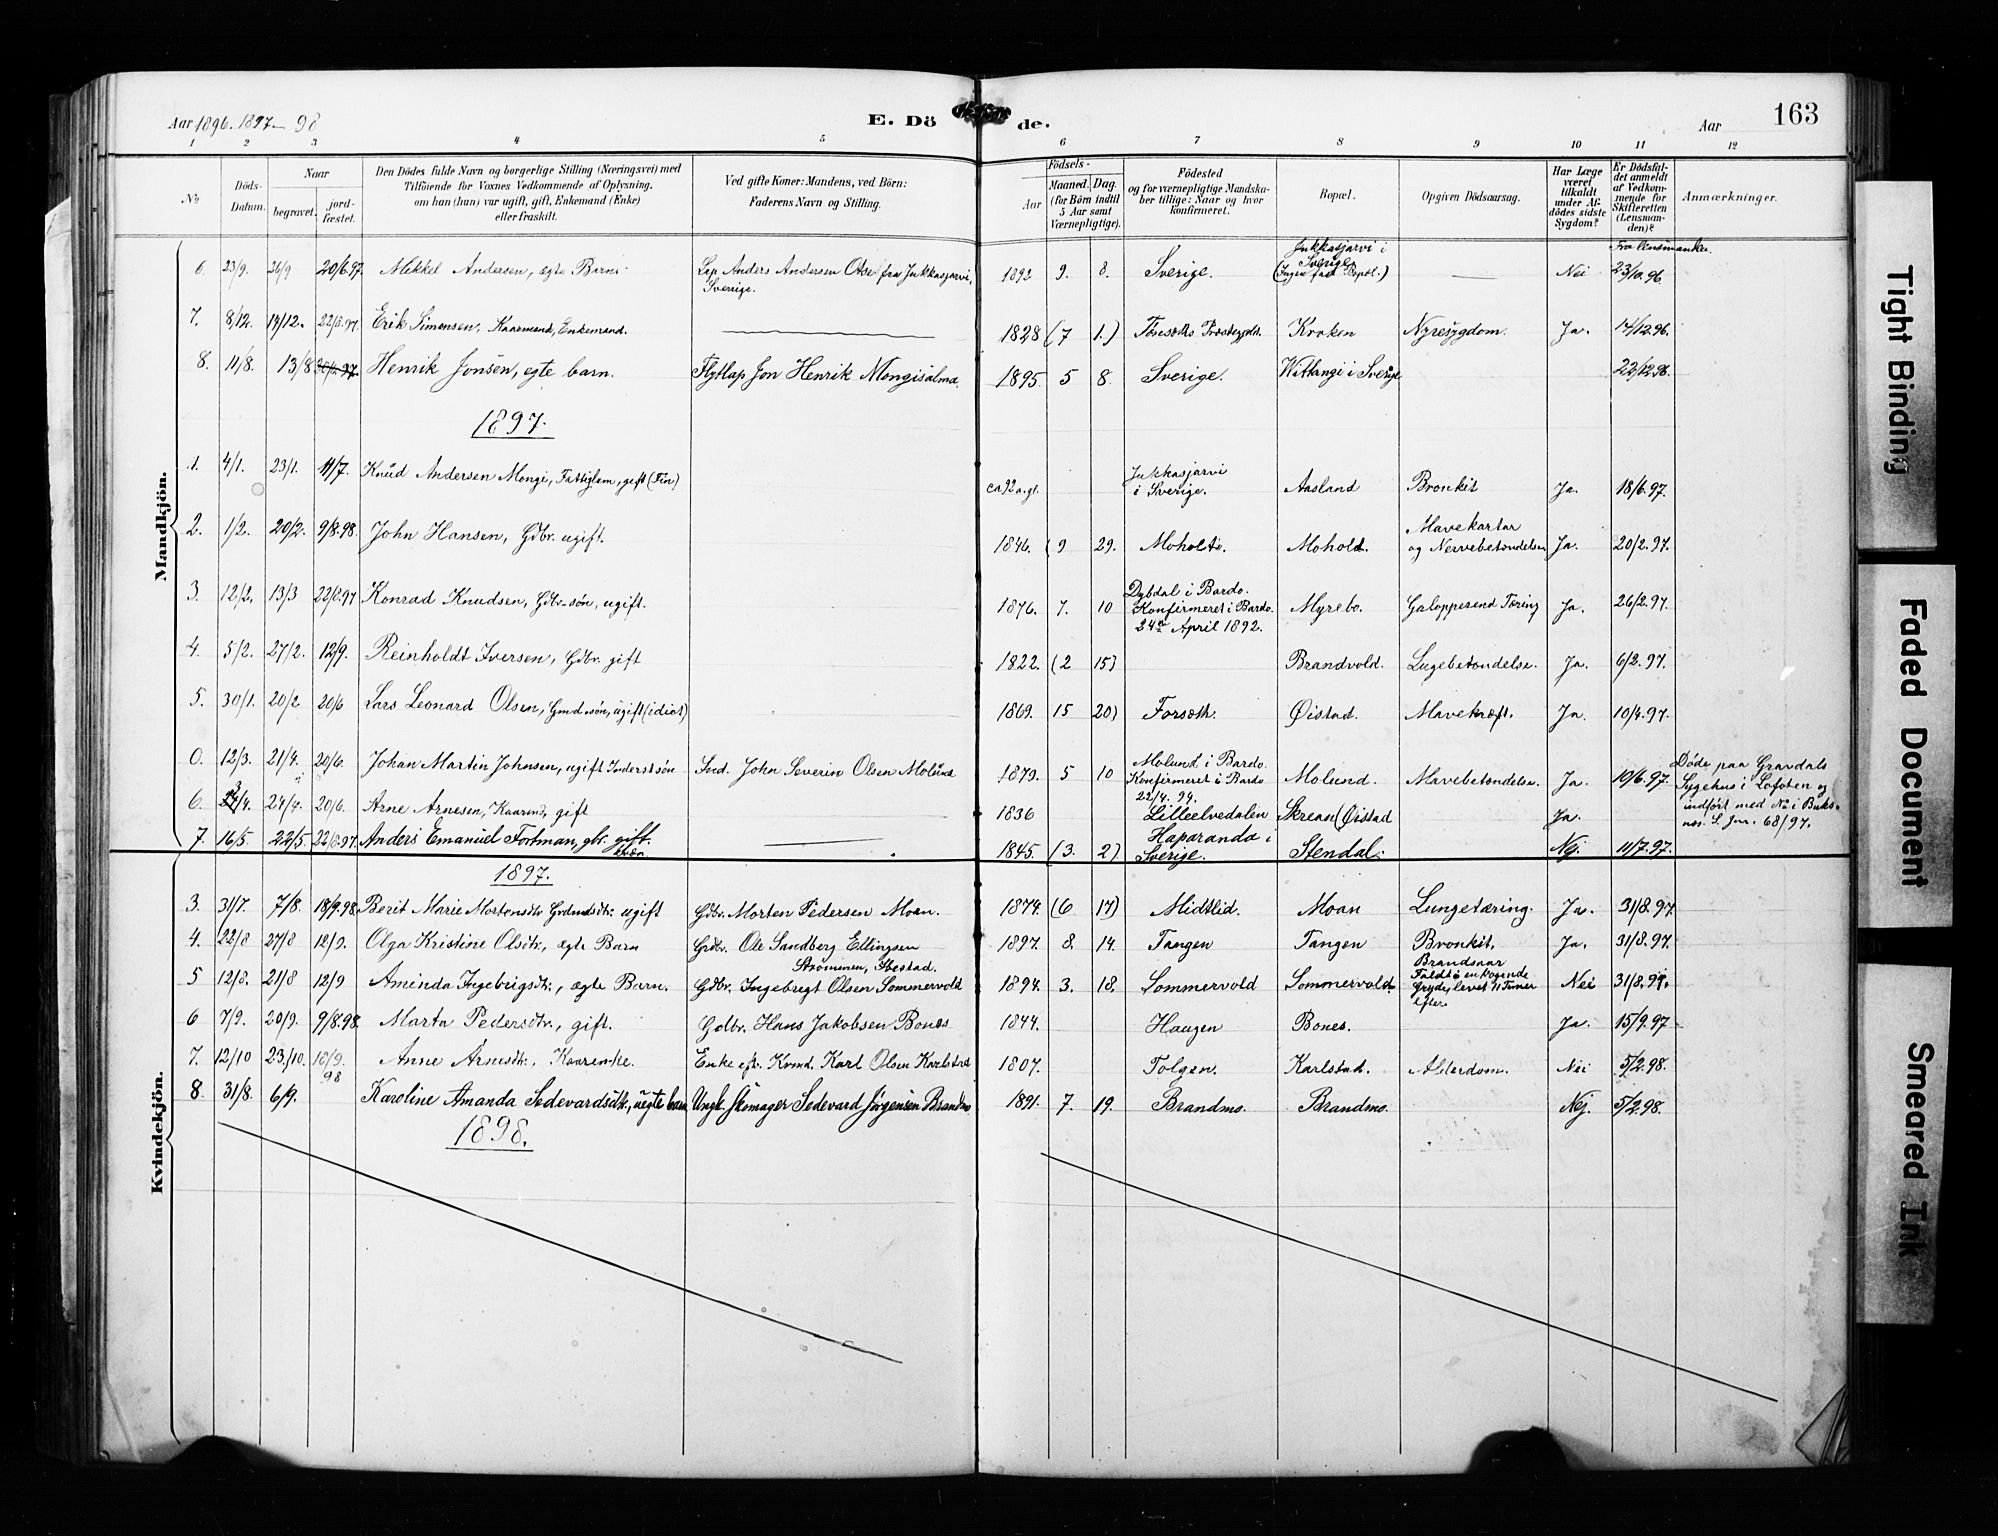 Aar 1896. 1897 - 98
E. Döde.
Aar
163
1 2 3 4 5 6 7 8 9 10 11 12
No
Döds-Datum.
Naar
begravet.
jord-fæstet.
Den Dödes fulde Navn og borgerlige Stilling (Næringsvei) med
Tilföiende for Voxnes Vedkommende af Oplysning,
om han (hun) var ugift, gift, Enkemand (Enke)
eller fraskilt.
Ved gifte Koner: Mandens, ved Börn:
Faderens Navn og Stilling.
Födsels-
Aar
Maaned. Dag.
(for Börn indtil
5 Aar samt
Værnepligtige).
Födested
og for værnepligtige Mandska-
ber tillige: Naar og hvor
konfirmeret.
Bopæl.
Opgiven Dödsaarsag.
Har Læge
været
tilkaldt
under Af-
dödes sidste
Sygdom?
Er Dödsfal-
det anmeldt
af Vedkom-
mende for
Skifteretten
(Lensman-
den)?
Anmærkninger.
Mandkjön.
6. 23/9. 26/9 20/6.97. Mikkel Andersen, egte Barn. Lap Anders Andersen Otse fra Jukkasjarvi, Sverige. 1892 9. 8. Sverige. Jukkasjarvi i Sverige (Ingen fast Bopæl.) — Nei 23/10.96.
7. 8/12. 14/12. 22/8.97. Erik Simonsen, Kaarmand, Enkemand. — 1828 (7 1.) Kroken Nyresygdom. Ja. 14/12.96.
8. 11/8. 13/8 Henrik Jonsen, egte barn. Flytlap Jon Henrik Mongisalma. 1895. 5 8. Sverige. Wittangi i Sverige 22/12.96.
1897.
1. 4/1. 23/1. 11/7. Knud Andersen Mongi, Fattiglem, gift (Fin) ca 92 a. gl. Jukkasjarvi i Sverige. Aasland Bronkit Ja. 18/6.97.
2. 1/2. 20/2. 9/8.98. John Hansen, Gdbr. ugift. 1846. (9 29. Moholt. Mohold. Mavekartar og Nervebetændelse Ja. 20/2.97.
3. 12/2. 13/3 22/8.97 Konrad Knudsen, Gdbr.søn, ugift. 1876. 7. 10 Dybdal i Bardo. Konfirmeret i Bardo. 24de April 1892. Myrebo. Galopperend Tæring Ja. 26/2.97.
4. 5/2. 27/2. 12/9. Reinholdt Iversen, Gdbr. gift 1822. (2 15) Brandvold. Lugebetændelse. Ja. 6/2.97.
5. 30/1. 20/2 20/6 Lars Leonard Olsen, Gmd.søn, ugift (idiot) 1869. 15 20) Forsæth. Øistad. Mavekræft. Ja. 10/4.97.
0. 12/3. 21/4. 20/6. Johan Martin Johnsen, ugift Inderstsøn Ind. John Severin Olsen Molund 1879. 5 10 Molund i Bardo. Konfirmeret i Bardo 22/4. 94. Molund. Mavebetændelse. Ja. 10/6.97. Døde paa Gravdals Sygehus i Lofoten og indført med No i Buksnes. S. Jnr. 68/97.
6. 24/4. 20/6. Arne Arnesen, Kaarmd, gift 1836 Lilleelvedalen Skrean (Øistad Ja.
7. 16/5. 22/5. 22/8.97. Anders Emanuel Fortman, gbr. gift. kvæn — 1845. (3. 2) Haparanda i Sverige. Stendal. Nej. 11/7.97.
Kvindekjön.
1897.
3. 31/7. 7/8. 18/9.98. Berit Marie Mortensdtr Grdmdsdtr. ugift Gdbr. Morten Pedersen Moan. 1874. (6 17) Midtlid. Moan Lungetæring. Ja. 31/8.97.
4. 22/8 27/8 12/9. Olga Kristine Olsdtr., ægte Barn Grdbr. Ole Sandberg Ellingsen Strømmen, Ibestad. 1897. 8. 14. Tangen Tangen Bronkit. Ja. 31/8.97.
5 12/8. 21/8 12/9 Aminda Ingebrigtsdtr., ægte Barn. Gdbr. Ingebrigt Olsen Sommervold 1894. 3. 18. Sommervold Sommervold Brandsaar Faldt i en kogende Gryde, levet 11 Timer efter Nei 31/8.97.
6 7/9. 20/9. 9/8.98. Marta Pedersdtr., gift. Gdbr. Hans Jakobsen Bones 1844. Haugen Bones. Ja. 15/9.97
7. 12/10 23/10. 18/9. 98 Anne Arnesdtr., Kaarenke. Enke eft. Kvmd. Karl Olsen Karlstad 1807. Tolgen. Karlstad. Alderdom. Nei 5/2.98.
8 31/8. 6/9. Karoline Amanda Sedevardsdtr., uegte barn Ungk. Skomager Sedevard Jørgensen Brandmo 1891. 7. 19. Brandmo. Brandmo. Nej. 5/2.98.
1898.
Tight Binding
Faded Document
Smeared Ink